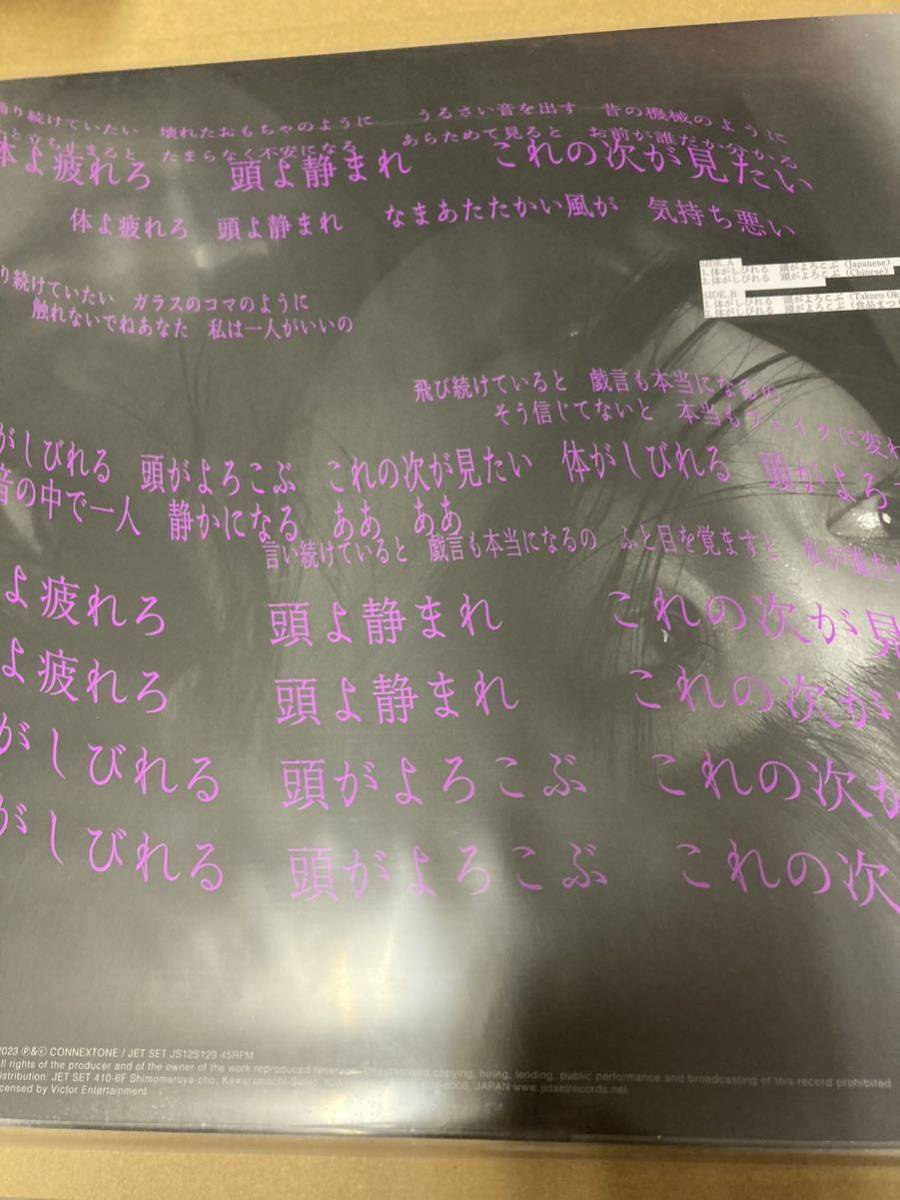 り続けていたい 壊れたおもちゃのように うるさい音を出す 昔の機械のように
と立ち止まると たまらなく不安になる あらためて見ると お前が誰だか分かる
体よ疲れろ 頭よ静まれ これの次が見たい
体よ疲れろ 頭よ静まれ なまあたたかい風が 気持ち悪い
SIDE A
1.体がしびれる 頭がよろこぶ (Japanese)
2.体がしびれる 頭がよろこぶ (Chinese)
SIDE B
1.体がしびれる 頭がよろこぶ (Takuro Ok
2.体がしびれる 頭がよろこぶ (食品まつ
り続けていたい ガラスのコマのように
触れないでねあなた 私は一人がいいの
飛び続けていると 戯言も本当になるの
そう信じてないと 本当もフェイクに変わ
がしびれる 頭がよろこぶ これの次が見たい 体がしびれる 頭がよろ
音の中で一人 静かになる ああ ああ
言い続けていると 戯言も本当になるの ふと目を覚ますと
よ疲れろ 頭よ静まれ これの次が見
よ疲れろ 頭よ静まれ これの次が
がしびれる 頭がよろこぶ これの次が
がしびれる 頭がよろこぶ これの次
2023 ℗&© CONNEXTONE / JET SET JS12S129 45RPM
All rights of the producer and of the owner of the work reproduced reserved. Unauthorised copying, hiring, lending, public performance and broadcasting of this record prohibited.
distribution: JET SET 410-6F Shimomaruya-cho, Kawaramachi-Sanjo, JAPAN www.jetsetrecords.net
licensed by Victor Entertainment